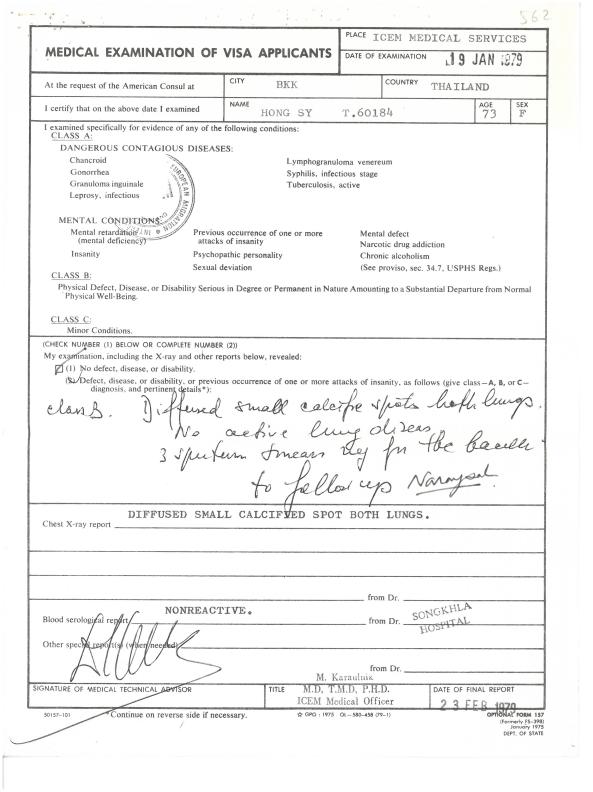 562
MEDICAL EXAMINATION OF VISA APPLICANTS
PLACE ICEM MEDICAL SERVICES
DATE OF EXAMINATION 19 JAN 1979
At the request of the American Consul at
CITY BKK
COUNTRY THAILAND
I certify that on the above date I examined
NAME HONG SY T.60184
AGE 73
SEX F
I examined specifically for evidence of any of the following conditions:
CLASS A:
DANGEROUS CONTAGIOUS DISEASES:
Chancroid
Gonorrhea
Granuloma inguinale
Leprosy, infectious
Lymphogranuloma venereum
Syphilis, infectious stage
Tuberculosis, active
EUROPEAN MIGRATION
MENTAL CONDITIONS:
Mental retardation
(mental deficiency)
Insanity
Previous occurrence of one or more
attacks of insanity
Psychopathic personality
Sexual deviation
Mental defect
Narcotic drug addiction
Chronic alcoholism
(See proviso, sec. 34.7, USPHS Regs.)
CLASS B:
Physical Defect, Disease, or Disability Serious in Degree or Permanent in Nature Amounting to a Substantial Departure from Normal
Physical Well-Being.
CLASS C:
Minor Conditions.
(CHECK NUMBER (1) BELOW OR COMPLETE NUMBER (2))
My examination, including the X-ray and other reports below, revealed:
(1) No defect, disease, or disability.
(2) Defect, disease, or disability, or previous occurrence of one or more attacks of insanity, as follows (give class—A, B, or C—
diagnosis, and pertinent details*):
class B. Diffused small calcific spots both lungs.
No active lung disease
3 sputum smears neg for the bacilli
to follow up
DIFFUSED SMALL CALCIFIED SPOT BOTH LUNGS.
Chest X-ray report
from Dr.
NONREACTIVE.
Blood serological report
from Dr. SONGKHLA
HOSPITAL
Other special report(s) (when needed)
from Dr.
M. Karaulnik
SIGNATURE OF MEDICAL TECHNICAL ADVISOR
TITLE M.D, T.M.D, P.H.D.
ICEM Medical Officer
DATE OF FINAL REPORT
23 FEB 1979
50157-101
*Continue on reverse side if necessary.
☆ GPO : 1975 OL—580-458 (79-1)
OPTIONAL FORM 157
(Formerly FS-398)
January 1975
DEPT. OF STATE